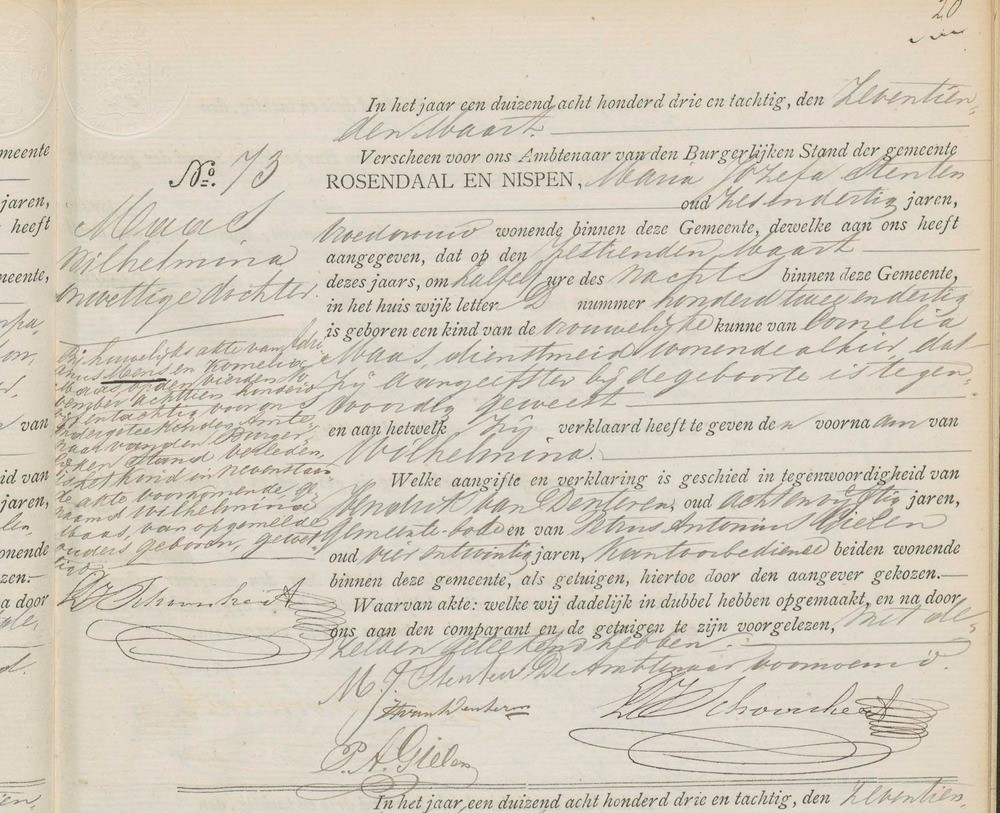 20
In het jaar een duizend acht honderd drie en tachtig, den Zeventien-
den Maart
Verscheen voor ons Ambtenaar van den Burgerlijken Stand der gemeente
ROSENDAAL EN NISPEN, Maria Jozefa Stenten
oud zesendertig jaren,
wonende binnen deze Gemeente, dewelke aan ons heeft
aangegeven, dat op den zestienden Maart
dezes jaars, om half ure des nachts binnen deze Gemeente,
in het huis wijk letter D nummer honderd twee en dertig
is geboren een kind van de vrouwelijke kunne van Cornelia
Maas, dienstmeid, wonende alhier, dat
zij aangeefster bij de geboorte is tegen-
woordig geweest
en aan hetwelk zij verklaard heeft te geven den voornaam van
Wilhelmina.
Welke aangifte en verklaring is geschied in tegenwoordigheid van
Hendrik van Denteren, oud achtenvijftig jaren,
Gemeente-bode en van Petrus Antonius Gielen
oud vier en twintig jaren, Kantoorbediende beiden wonende
binnen deze gemeente, als getuigen, hiertoe door den aangever gekozen.
Waarvan akte: welke wij dadelijk in dubbel hebben opgemaakt, en na door
ons aan den comparant en de getuigen te zijn voorgelezen, met de-
zelven geteekend hebben.
M. J. Stenten De Ambtenaar voornoemd.
HvanDenteren
P. A. Gielen
No. 73
Maas
Wilhelmina
onwettige dochter.
Bij huwelijks akte van Adri-
anus Mens en Kornelia
Maas, op den vierden
vember achttien honderd
vijf en tachtig voor on
dergeteekenden Ambte-
naar van den Burger-
lijken Stand verleden,
is het kind in nevenstaan
de akte voorkomende, ge-
naamd Wilhelmina
Maas, van opgemelde
ouders geboren, gewet-
tigd.
In het jaar een duizend acht honderd drie en tachtig, den Zeventien-
meente
jaren,
heeft
meente,
van
eid van
jaren,
onende
zen.
a door